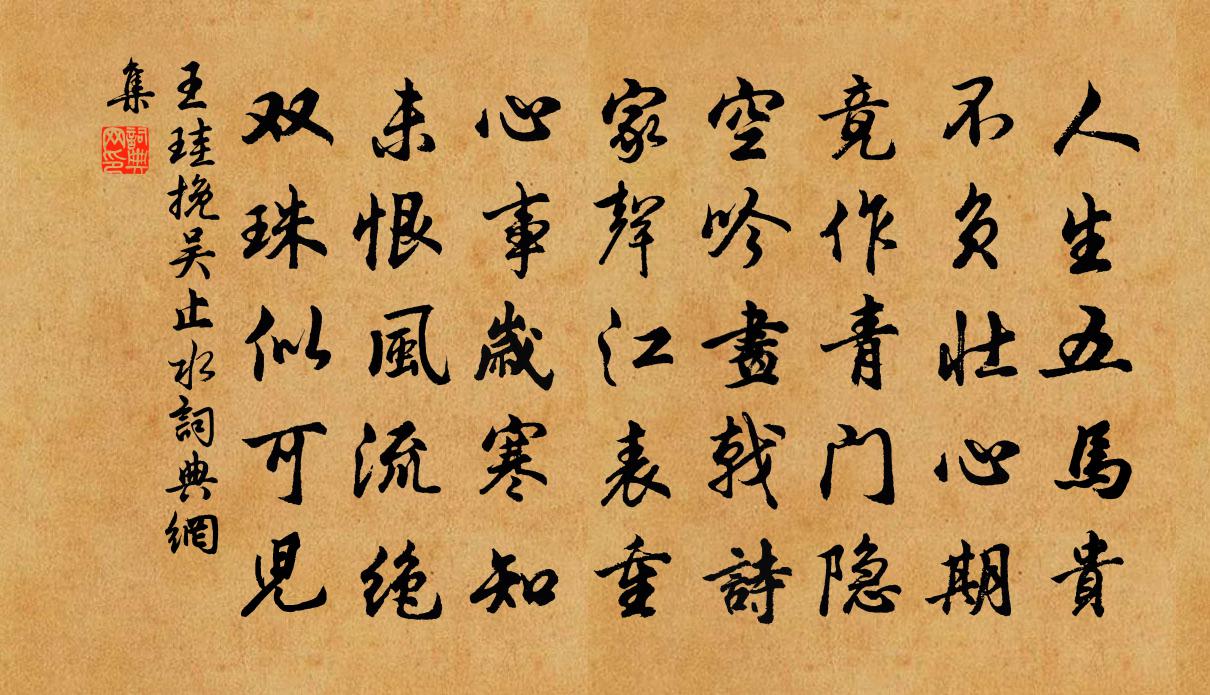 人生五馬貴
不負壯心期
竟作青门隐
空吟畫戟詩
家聲江表重
心事歲寒知
未恨風流绝
双珠似可見
王珪挽吴止水詞典網
集
詞典
网印